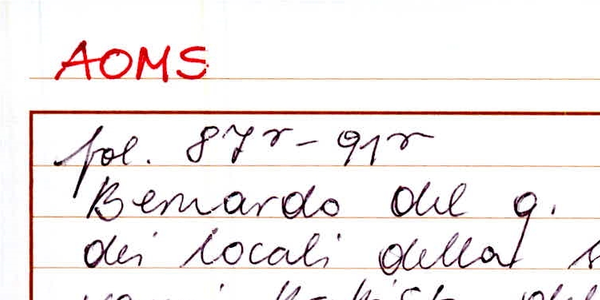 AOMS
fol. 87r - 91r
Bernardo del q.
dei locali della